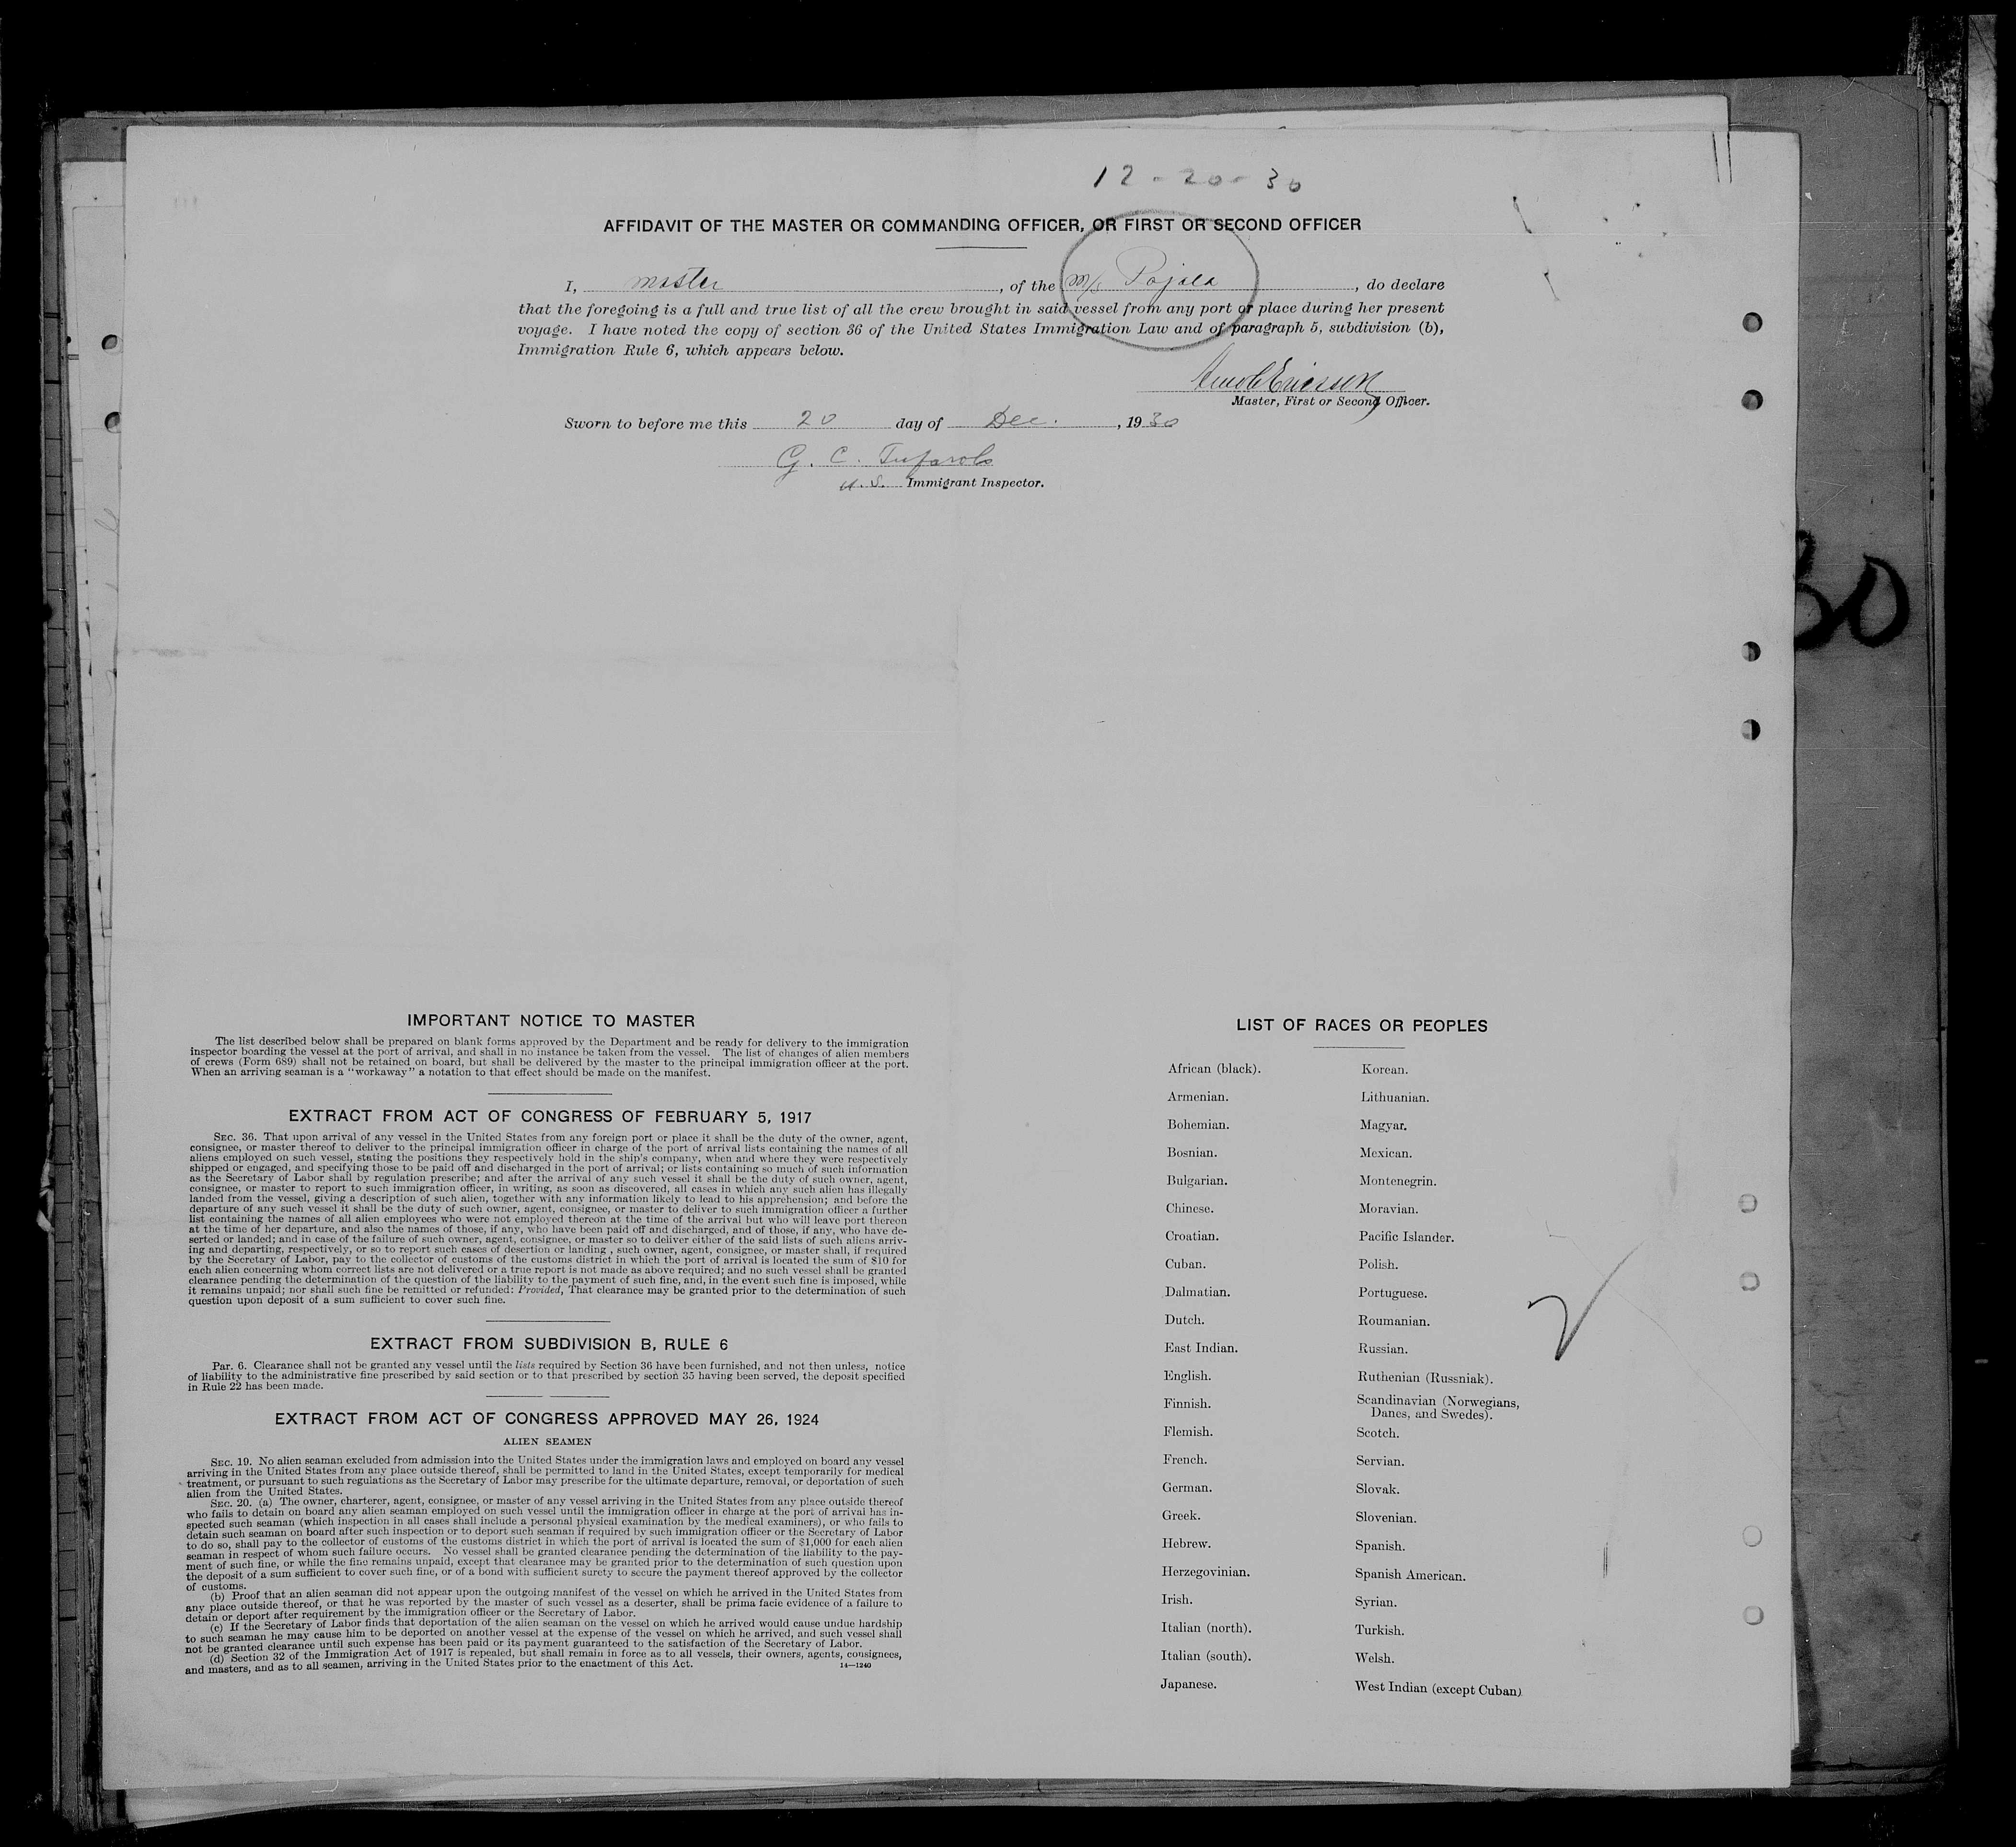 12-20-30
AFFIDAVIT OF THE MASTER OR COMMANDING OFFICER, OR FIRST OR SECOND OFFICER
I, master, of the M/S Pajala, do declare
that the foregoing is a full and true list of all the crew brought in said vessel from any port or place during her present
voyage. I have noted the copy of section 36 of the United States Immigration Law and of paragraph 5, subdivision (b),
Immigration Rule 6, which appears below.
Ericsson
Master, First or Second Officer.
Sworn to before me this 20 day of Dec., 1930
G. C.
U.S. Immigrant Inspector.
30
IMPORTANT NOTICE TO MASTER
The list described below shall be prepared on blank forms approved by the Department and be ready for delivery to the immigration
inspector boarding the vessel at the port of arrival, and shall in no instance be taken from the vessel. The list of changes of alien members
of crews (Form 689) shall not be retained on board, but shall be delivered by the master to the principal immigration officer at the port.
When an arriving seaman is a "workaway" a notation to that effect should be made on the manifest.
EXTRACT FROM ACT OF CONGRESS OF FEBRUARY 5, 1917
SEC. 36. That upon arrival of any vessel in the United States from any foreign port or place it shall be the duty of the owner, agent,
consignee, or master thereof to deliver to the principal immigration officer in charge of the port of arrival lists containing the names of all
aliens employed on such vessel, stating the positions they respectively hold in the ship's company, when and where they were respectively
shipped or engaged, and specifying those to be paid off and discharged in the port of arrival; or lists containing so much of such information
as the Secretary of Labor shall by regulation prescribe; and after the arrival of any such vessel it shall be the duty of such owner, agent,
consignee, or master to report to such immigration officer, in writing, as soon as discovered, all cases in which any such alien has illegally
landed from the vessel, giving a description of such alien, together with any information likely to lead to his apprehension; and before the
departure of any such vessel it shall be the duty of such owner, agent, consignee, or master to deliver to such immigration officer a further
list containing the names of all alien employees who were not employed thereon at the time of the arrival but who will leave port thereon
at the time of her departure, and also the names of those, if any, who have been paid off and discharged, and of those, if any, who have de-
serted or landed; and in case of the failure of such owner, agent, consignee, or master so to deliver either of the said lists of such aliens arriv-
ing and departing, respectively, or so to report such cases of desertion or landing , such owner, agent, consignee, or master shall, if required
by the Secretary of Labor, pay to the collector of customs of the customs district in which the port of arrival is located the sum of $10 for
each alien concerning whom correct lists are not delivered or a true report is not made as above required; and no such vessel shall be granted
clearance pending the determination of the question of the liability to the payment of such fine, and, in the event such fine is imposed, while
it remains unpaid; nor shall such fine be remitted or refunded: Provided, That clearance may be granted prior to the determination of such
question upon deposit of a sum sufficient to cover such fine.
EXTRACT FROM SUBDIVISION B, RULE 6
Par. 6. Clearance shall not be granted any vessel until the lists required by Section 36 have been furnished, and not then unless, notice
of liability to the administrative fine prescribed by said section or to that prescribed by section 35 having been served, the deposit specified
in Rule 22 has been made.
EXTRACT FROM ACT OF CONGRESS APPROVED MAY 26, 1924
ALIEN SEAMEN
SEC. 19. No alien seaman excluded from admission into the United States under the immigration laws and employed on board any vessel
arriving in the United States from any place outside thereof, shall be permitted to land in the United States, except temporarily for medical
treatment, or pursuant to such regulations as the Secretary of Labor may prescribe for the ultimate departure, removal, or deportation of such
alien from the United States.
SEC. 20. (a) The owner, charterer, agent, consignee, or master of any vessel arriving in the United States from any place outside thereof
who fails to detain on board any alien seaman employed on such vessel until the immigration officer in charge at the port of arrival has in-
spected such seaman (which inspection in all cases shall include a personal physical examination by the medical examiners), or who fails to
detain such seaman on board after such inspection or to deport such seaman if required by such immigration officer or the Secretary of Labor
to do so, shall pay to the collector of customs of the customs district in which the port of arrival is located the sum of $1,000 for each alien
seaman in respect of whom such failure occurs. No vessel shall be granted clearance pending the determination of the liability to the pay-
ment of such fine, or while the fine remains unpaid, except that clearance may be granted prior to the determination of such question upon
the deposit of a sum sufficient to cover such fine, or of a bond with sufficient surety to secure the payment thereof approved by the collector
of customs.
(b) Proof that an alien seaman did not appear upon the outgoing manifest of the vessel on which he arrived in the United States from
any place outside thereof, or that he was reported by the master of such vessel as a deserter, shall be prima facie evidence of a failure to
detain or deport after requirement by the immigration officer or the Secretary of Labor.
(c) If the Secretary of Labor finds that deportation of the alien seaman on the vessel on which he arrived would cause undue hardship
to such seaman he may cause him to be deported on another vessel at the expense of the vessel on which he arrived, and such vessel shall
not be granted clearance until such expense has been paid or its payment guaranteed to the satisfaction of the Secretary of Labor.
(d) Section 32 of the Immigration Act of 1917 is repealed, but shall remain in force as to all vessels, their owners, agents, consignees,
and masters, and as to all seamen, arriving in the United States prior to the enactment of this Act. 14—1240
LIST OF RACES OR PEOPLES
African (black).
Armenian.
Bohemian.
Bosnian.
Bulgarian.
Chinese.
Croatian.
Cuban.
Dalmatian.
Dutch.
East Indian.
English.
Finnish.
Flemish.
French.
German.
Greek.
Hebrew.
Herzegovinian.
Irish.
Italian (north).
Italian (south).
Japanese.
Korean.
Lithuanian.
Magyar.
Mexican.
Montenegrin.
Moravian.
Pacific Islander.
Polish.
Portuguese.
Roumanian.
Russian.
Ruthenian (Russniak).
Scandinavian (Norwegians,
Danes, and Swedes).
Scotch.
Servian.
Slovak.
Slovenian.
Spanish.
Spanish American.
Syrian.
Turkish.
Welsh.
West Indian (except Cuban)